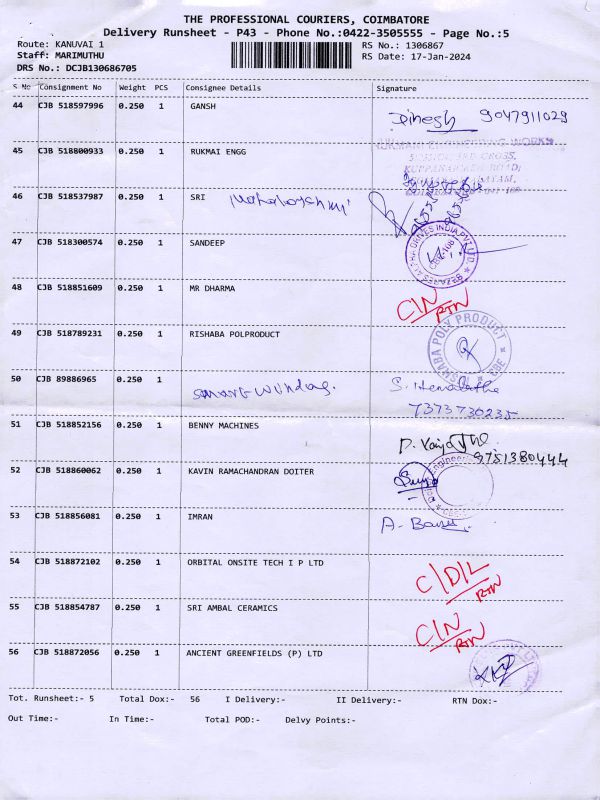 THE PROFESSIONAL COURIERS, COIMBATORE
Delivery Runsheet - P43 - Phone No.:0422-3505555 - Page No.:5
Route: KANUVAI 1 RS No.: 1306867
Staff: MARIMUTHU RS Date: 17-Jan-2024
DRS No.: DCJB130686705
S No Consignment No Weight PCS Consignee Details Signature
44 CJB 518597996 0.250 1 GANSH Dinesh 9047911029
45 CJB 518800933 0.250 1 RUKMAI ENGG
46 CJB 518537987 0.250 1 SRI Mahalakshmi
47 CJB 518300574 0.250 1 SANDEEP
48 CJB 518851609 0.250 1 MR DHARMA C/N RTN
49 CJB 518789231 0.250 1 RISHABA POLPRODUCT
50 CJB 89886965 0.250 1 S. Hemalathe
7373730235
51 CJB 518852156 0.250 1 BENNY MACHINES 9751380444
52 CJB 518860062 0.250 1 KAVIN RAMACHANDRAN DOITER
53 CJB 518856081 0.250 1 IMRAN
54 CJB 518872102 0.250 1 ORBITAL ONSITE TECH I P LTD C/D/L RTN
55 CJB 518854787 0.250 1 SRI AMBAL CERAMICS C/N RTN
56 CJB 518872056 0.250 1 ANCIENT GREENFIELDS (P) LTD
Tot. Runsheet:- 5 Total Dox:- 56 I Delivery:- II Delivery:- RTN Dox:-
Out Time:- In Time:- Total POD:- Delvy Points:-